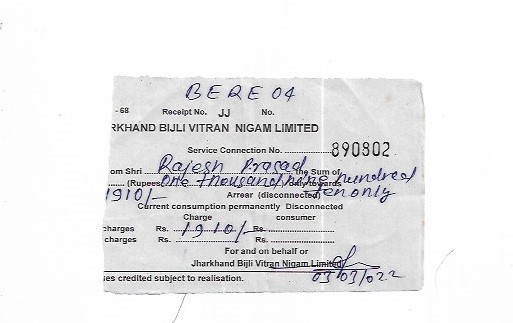 BERE 04
- 68 Receipt No. JJ No.
RKHAND BIJLI VITRAN NIGAM LIMITED
Service Connection No. 890802
om Shri Rajesh Prasad the Sum of
(Rupees One thousand nine hundred only towards
1910/- Arrear (disconnected) ten only
Current consumption permanently Disconnected
Charge consumer
charges Rs. 1910/- Rs.
charges Rs. Rs.
For and on behalf or
Jharkhand Bijli Vitran Nigam Limited
03/03/022
es credited subject to realisation.